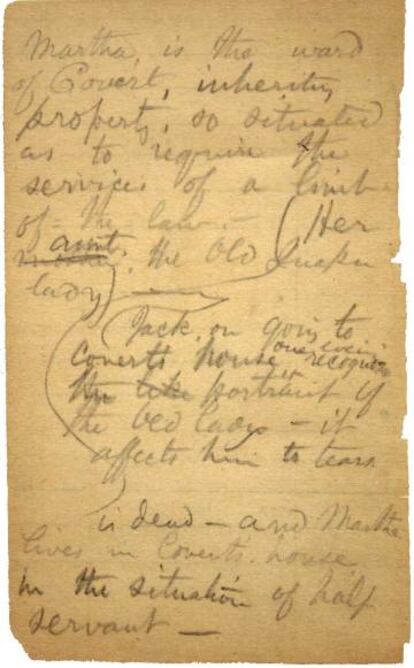 Martha, is the ward
of Covert, inheriting
property, so situated
as to require the
services of a limb
of the law. — (Her
aunt
mother, the old Quaker
lady) —
(Jack, on going to
Covert's house one evening recognizes
the like portrait of
the old lady — it
affects him to tears
is dead — and Martha
lives in Covert's house
in the situation of half
servant —